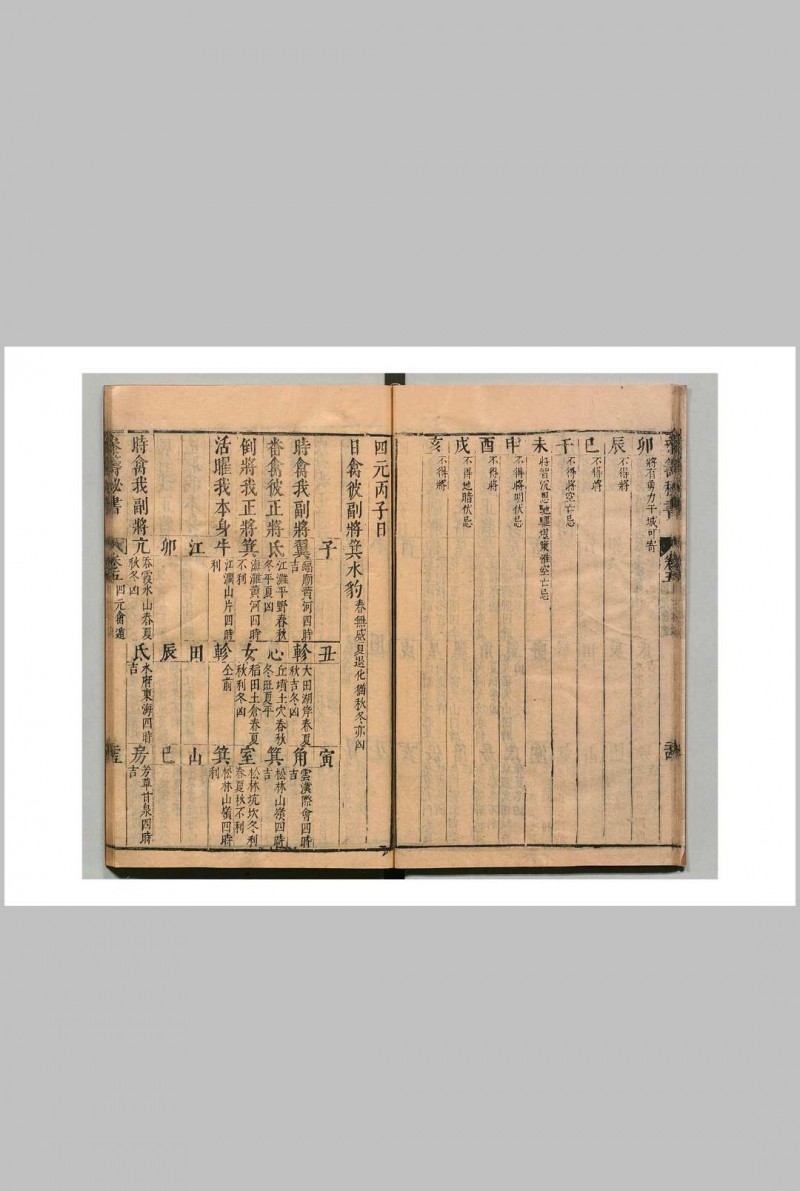 卯 將有勇力干城可寄
辰 不得將
巳 不得將
午 不得將空亡忌
未 將智沉思馳驅
申 不得將明伏忌
酉 不得將
戌 不得地暗伏忌
亥 不得將
四元丙子日
日禽彼副將箕水豹 春無威夏退化猶秋冬亦凶
子 丑 寅
時禽我副將翼 廟黃河四時吉 軫 大田湖岸春夏秋吉冬凶 角 雲漢際會四時吉
番禽彼正將氐 江灘平野春秋冬平夏凶 心 丘墳土穴春秋冬旺夏平 箕 松林山嶺四時吉
倒將我正將箕 灘黃河四時不利 女 稻田土倉春夏秋利冬凶 室 松林坑坎冬利春夏秋不利
活曜我本身牛 江澗山片四時利 軫 仝前 箕 松林山嶺四時利
江 田 山
卯 辰 巳
時禽我副將亢 吞霞氷山春夏秋冬凶 氐 水府東海四時吉 房 芳草甘泉四時吉
祕書 卷五 四元禽遁